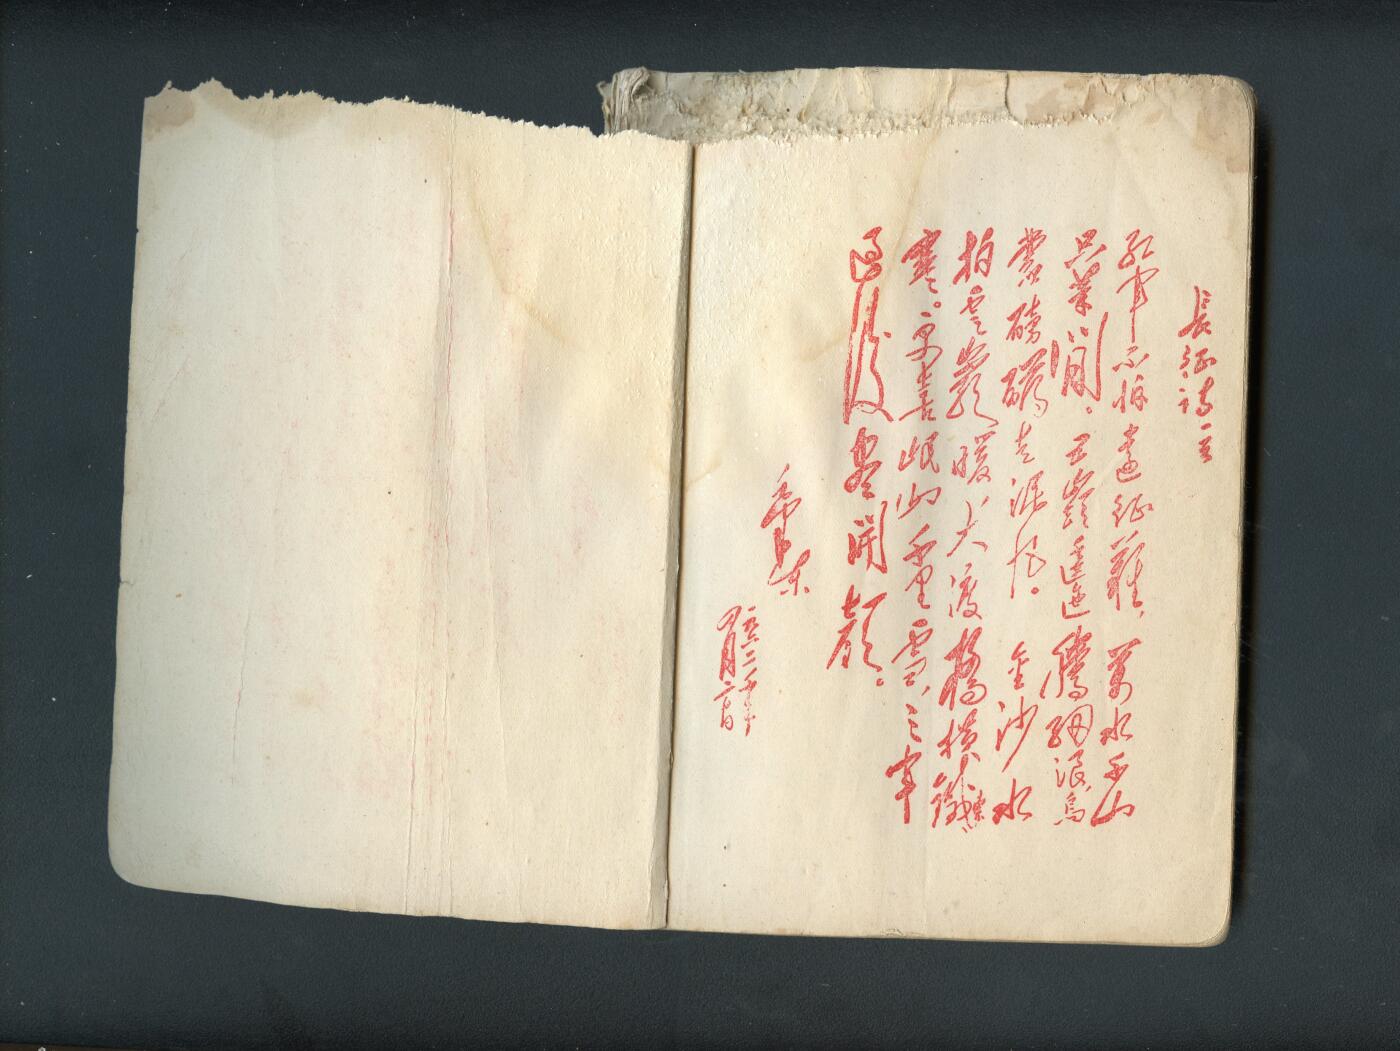 長征詩一首
紅軍不怕遠征難，萬水千山
只等閒。五嶺逶迤騰細浪，烏
蒙磅礴走泥丸。金沙水
拍雲巖暖，大渡橋橫鐵索
寒。更喜岷山千里雪，三軍
過後盡開顏。
毛澤東
一九六二年
四月二十日